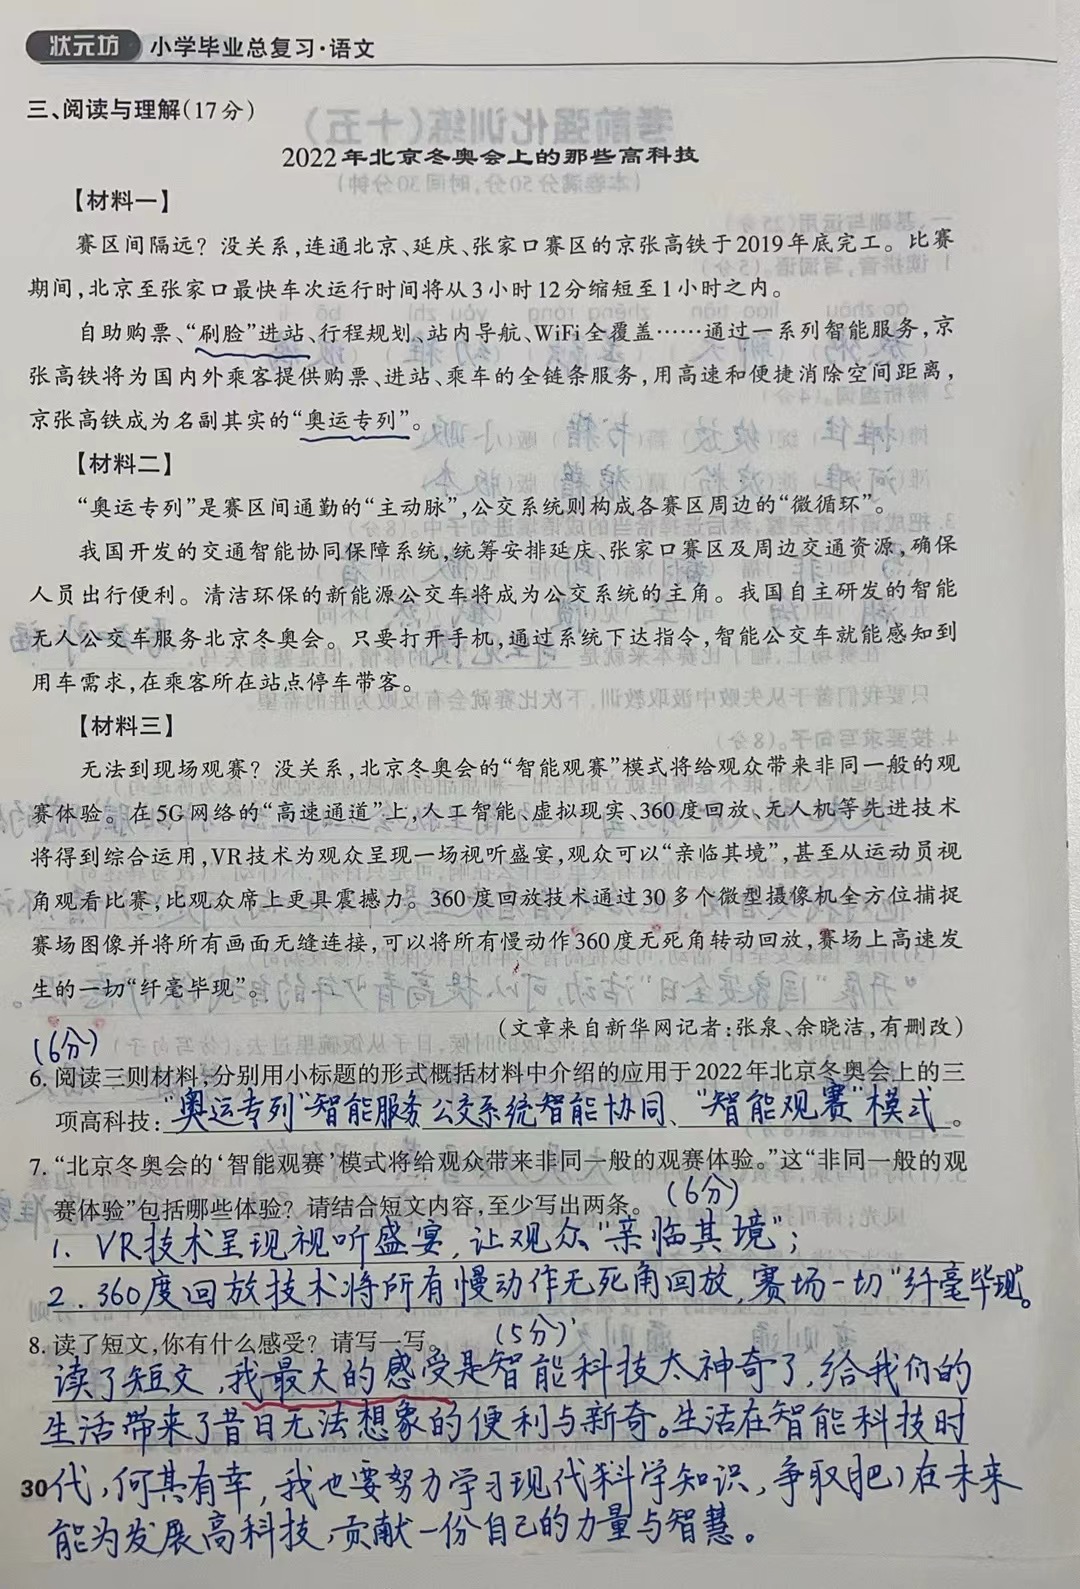 状元坊 小学毕业总复习·语文
三、阅读与理解(17分)
2022年北京冬奥会上的那些高科技
【材料一】
赛区间隔远？没关系,连通北京、延庆、张家口赛区的京张高铁于2019年底完工。比赛
期间,北京至张家口最快车次运行时间将从3小时12分缩短至1小时之内。
自助购票、“刷脸”进站、行程规划、站内导航、WiFi全覆盖……通过一系列智能服务,京
张高铁将为国内外乘客提供购票、进站、乘车的全链条服务,用高速和便捷消除空间距离,
京张高铁成为名副其实的“奥运专列”。
【材料二】
“奥运专列”是赛区间通勤的“主动脉”,公交系统则构成各赛区周边的“微循环”。
我国开发的交通智能协同保障系统,统筹安排延庆、张家口赛区及周边交通资源,确保
人员出行便利。清洁环保的新能源公交车将成为公交系统的主角。我国自主研发的智能
无人公交车服务北京冬奥会。只要打开手机,通过系统下达指令,智能公交车就能感知到
用车需求,在乘客所在站点停车带客。
【材料三】
无法到现场观赛？没关系,北京冬奥会的“智能观赛”模式将给观众带来非同一般的观
赛体验。在5G网络的“高速通道”上,人工智能、虚拟现实、360度回放、无人机等先进技术
将得到综合运用,VR技术为观众呈现一场视听盛宴,观众可以“亲临其境”,甚至从运动员视
角观看比赛,比观众席上更具震撼力。360度回放技术通过30多个微型摄像机全方位捕捉
赛场图像并将所有画面无缝连接,可以将所有慢动作360度无死角转动回放,赛场上高速发
生的一切“纤毫毕现”。
(文章来自新华网记者:张泉、余晓洁,有删改)
(6分)
6. 阅读三则材料,分别用小标题的形式概括材料中介绍的应用于2022年北京冬奥会上的三
项高科技: “奥运专列”智能服务 公交系统智能协同、“智能观赛”模式 。
7. “北京冬奥会的‘智能观赛’模式将给观众带来非同一般的观赛体验。”这“非同一般的观
赛体验”包括哪些体验？请结合短文内容,至少写出两条。(6分)
1. VR技术呈现视听盛宴,让观众“亲临其境”;
2. 360度回放技术将所有慢动作无死角回放,赛场一切“纤毫毕现”。
8. 读了短文,你有什么感受？请写一写。(5分)
读了短文,我最大的感受是智能科技太神奇了,给我们的
生活带来了昔日无法想象的便利与新奇。生活在智能科技时
30 代,何其有幸,我也要努力学习现代科学知识,争取在未来
能为发展高科技,贡献一份自己的力量与智慧。